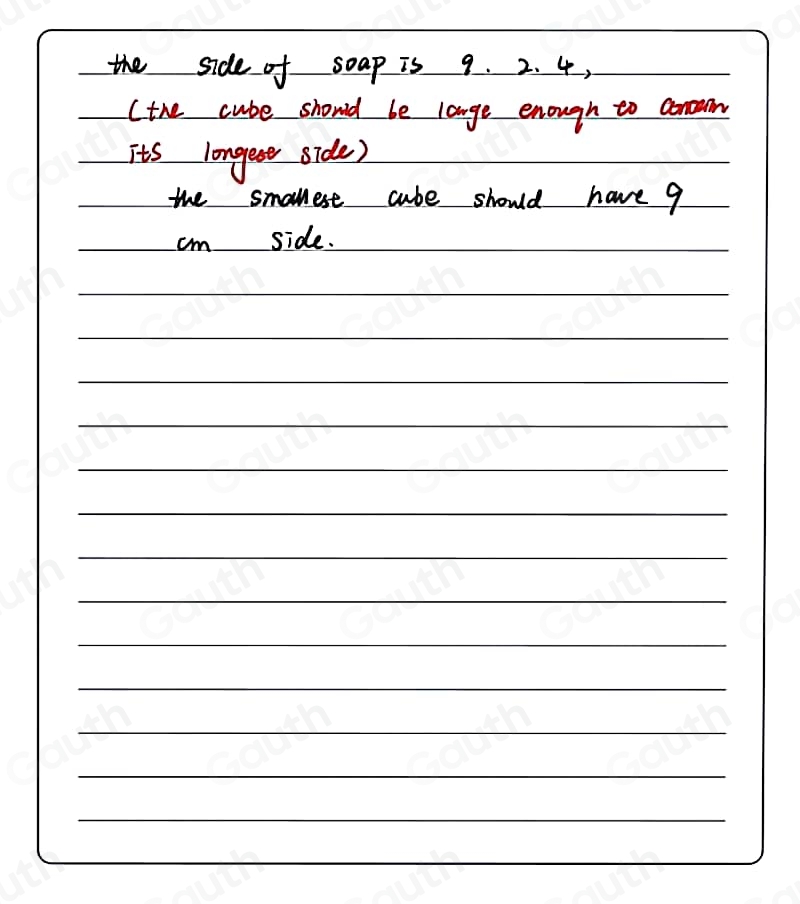 the side of soap is 9. 2. 4,
(the cube should be large enough to contain
its longese side)
the smallese cube should have 9
cm side.